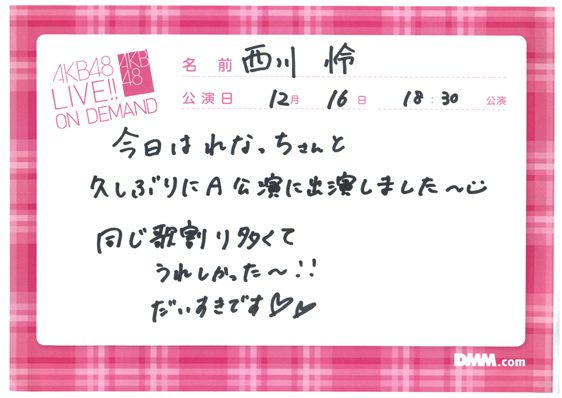 AKB48
LIVE!!
ON DEMAND
AKB
48
名 前 西川 怜
公演日 12月 16日 18:30 公演
今日は れなっちさんと
久しぶりに A 公演に出演しました〜
同じ歌割り多くて
うれしかった〜!!
だいすきです♡♡
DMM.com